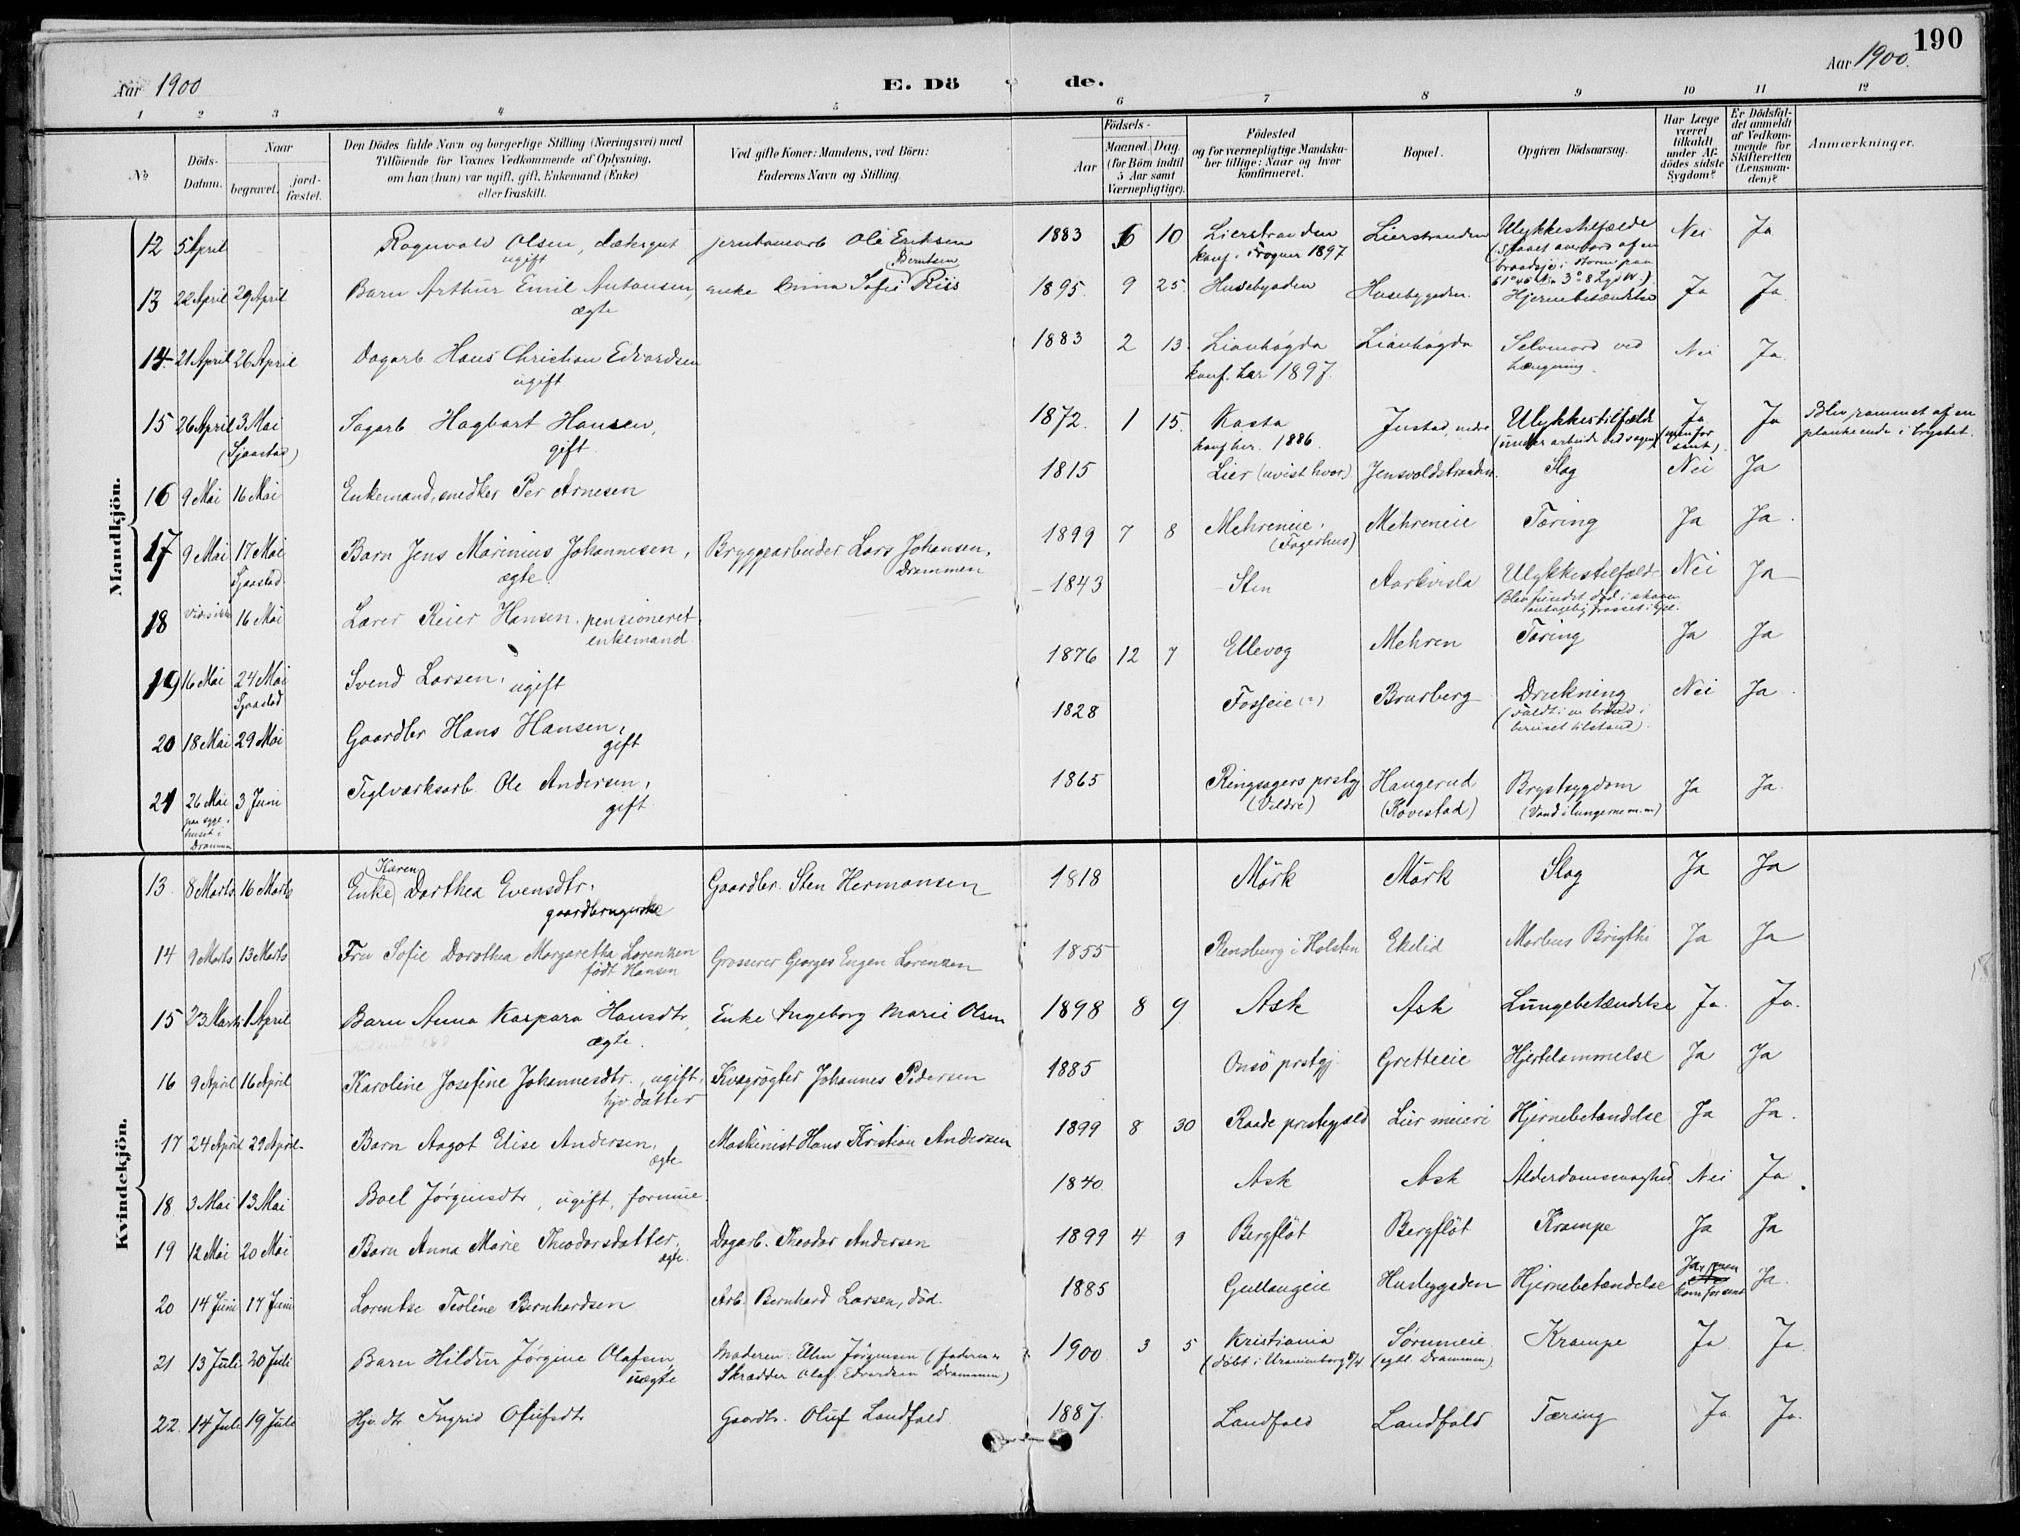 190
Aar 1900
E. Dö de.
Aar 1900.
1 2 3 4 5 6 7 8 9 10 11 12
No
Döds-Datum.
Naar
begravet.
jordfæstet.
Den Dödes fulde Navn og borgerlige Stilling (Næringsvei) med
Tilföiende for Voxnes Vedkommende af Oplysning,
om han (hun) var ugift, gift, Enkemand (Enke)
eller fraskilt.
Ved gifte Koner: Mandens, ved Börn:
Faderens Navn og Stilling.
Födsels-
Aar
Maaned. Dag.
(for Börn indtil
5 Aar samt
Værnepligtige).
Födested
og for værnepligtige Mandskaber tillige: Naar og hvor
konfirmeret.
Bopæl.
Opgiven Dödsaarsag.
Har Læge
været
tilkaldt
under Afdödes sidste
Sygdom?
Er Dödsfaldet anmeldt
af Vedkommende for
Skifteretten
(Lensmanden)?
Anmærkninger.
Mandkjön.
12 5 April Ragnvald Olsen, dæksgut ugift jernbanearb Ole Eriksen 1883 6 10 Lierstranden konf. i 1897 Lierstranden Ulykkestilfælde (slaaet overbord af en braadsjø i storm paa Nei Ja
13 22 April 29 April Barn Arthur Emil Antonsen, ægte enke Anna Sofie Berntsen Riis 1895. 9 25. Husebygden Husebygden. Hjernebetændelse Ja Ja.
14. 21 April 26 April Dagarb Hans Christian Edvardsen ugift. 1883 2 13. Lianhøgda konf. her 1897. Lianhøgda Selvmord ved hængning. Nei Ja.
15 26 April 3 Mai (Sjaastad) Sagarb Hagbart Hansen, gift. 1872. 1 15. konf her. 1886. Justad, nedre Ulykkestilfælde (under arbeide ved sagen) Ja (men for sent). Ja Blev rammet af en plankeende i brystet.
16 9 Mai 16 Mai Enkemand, snedker Per Arnesen 1815 Lier (uvist hvor) Jensvoldstranden. Slag Nei Ja
17 9 Mai 17 Mai Sjaastad. Barn Jens Marinius Johannesen, ægte. Bryggearbeider Lars Johansen. Drammen 1899 7 8 Mehreneie. (Fagerhus) Mehreneie Tæring Ja Ja.
18 16 Mai Lærer Reier Hansen, pensioneret, enkemand 1843 Sten Aarkvisla Ulykkestilfælde Blev fundet død i skoven antagelig frosset ihjel. Nei Ja
19 16 Mai 24 Mai Sjaastad Svend Larsen, ugift 1876 12 7 Ellevog Mehren Tæring Ja Ja
20 18 Mai 29 Mai Gaardbr Hans Hansen, gift 1828 Fosseie (?) Brurberg Drukning (faldt i en brønd i beruset tilstand). Nei Ja.
21 26 Mai paa sygehuset i Drammen 3 Juni Teglværksarb. Ole Andersen, gift. 1865 Ringsagers prstgj (Veldre) Haugerud (Kovestad) Brystsygdom (Vand i lungerne m.m) Ja Ja.
Kvindekjön.
13. 8 Marts 16 Marts Enke (Karen) Dorthea Evensdtr, gaardbrugerske Gaardbr. Sten Hermansen 1818 Mørk Mørk Slag Ja Ja
14 9 Marts 13 Marts Fru Sofie Dorothea Margaretha Lorenzen født Hansen Grosserer Georges Eugen Lorenzen 1855 Rensburg i Holsten Ekelid Morbus Brigthi Ja Ja
15 23 Marts 1 April Barn Anna Kaspara Hansdtr ægte. Enke Ingeborg Marie Olsen 1898 8 9 Ask Ask Lungebetændelse Ja. Ja.
16 9 April 16 April Karoline Josefine Johannesdtr., ugift, hjv. datter Kvægrøgter Johannes Pedersen 1885 Onsø prstgj. Gretteeie Hjertelammelse Ja Ja
17 24 April 29 April. Barn Aagot Elise Andersen, ægte Maskinist Hans Kristian Andersen 1899 8 30 Raade prestegjeld Lier meieri Hjernebetændelse Ja Ja.
18 3 Mai 13 Mai Boel Jørgensdtr, ugift, formue. 1840. Ask Ask Alderdomssvaghed Nei Ja.
19 12 Mai 20 Mai Barn Anna Marie Theodorsdatter, ægte. Dagarb. Theodor Andersen 1899 4 9 Bergfløt Bergfløt Krampe Ja Ja
20 14 Juni 17 Juni Lorentse Teoline Bernhardsen Arb. Bernhard Larsen, død. 1885 Gullaugeie Husbygden Hjernebetændelse Ja, men kom for sent Ja.
21 13 Juli 20 Juli Barn Hildur Jørgine Olafsen, uægte Moderen: Elin Jørgensen (faderen: Skrædder Olaf Edvardsen Drammen) 1900. 3 5 Kristiania (døbt i Uranienborg 8/4 Sørumeie (egtl. Drammen) Krampe Ja. Ja.
22. 14 Juli 19 Juli Hjv. dtr Ingrid Olufsdtr Gaardbr. Oluf Landfald. 1887. Landfald Landfald Tæring Ja Ja.